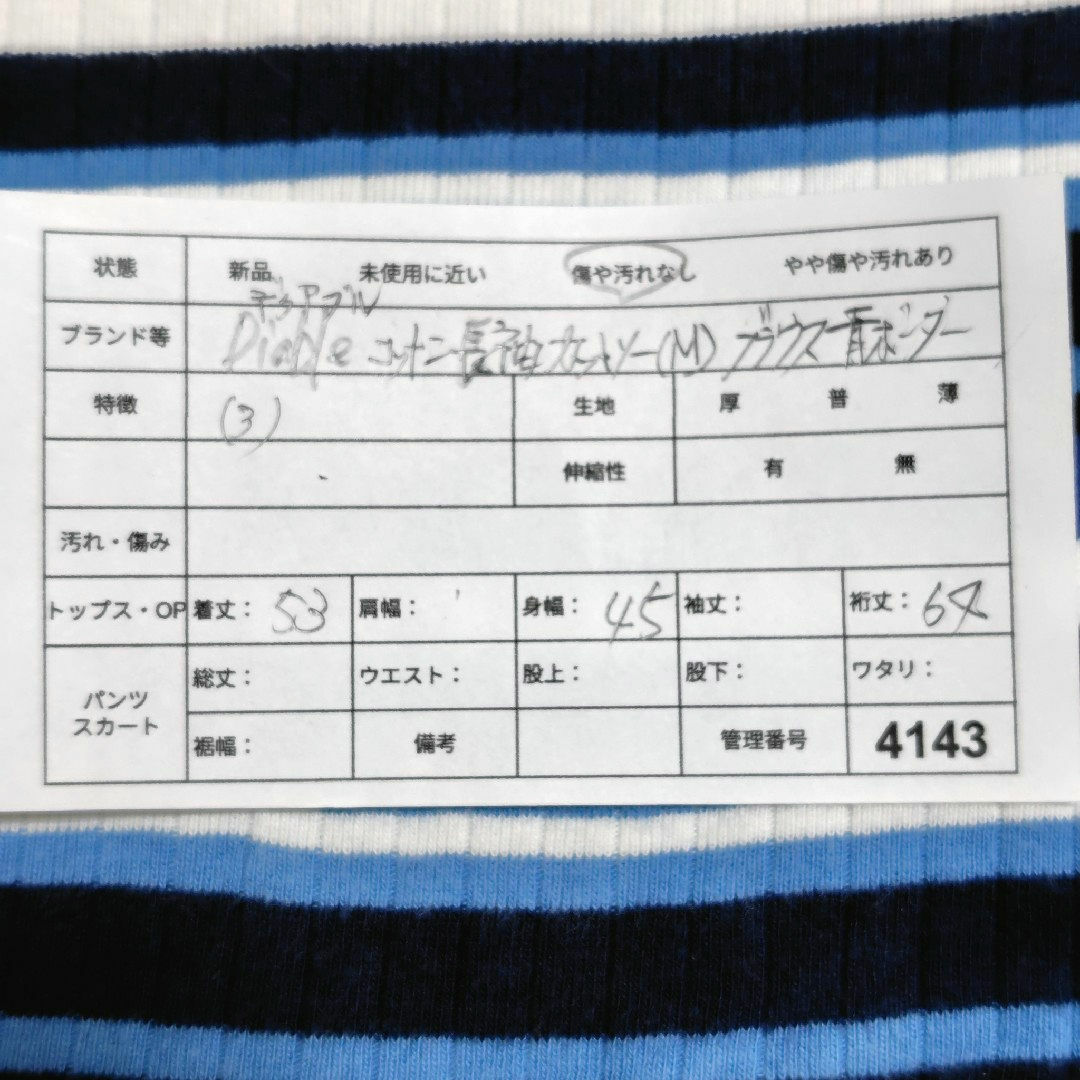 状態 新品 未使用に近い 傷や汚れなし やや傷や汚れあり
ディアブル
ブランド等 Diable コットン長袖カットソー(M) ブラウス 青ボーダー
特徴 (3) 生地 厚 普 薄
伸縮性 有 無
汚れ・傷み
トップス・OP 着丈: 53 肩幅: 身幅: 45 袖丈: 裄丈: 64
パンツ
スカート
総丈: ウエスト: 股上: 股下: ワタリ:
裾幅: 備考 管理番号 4143